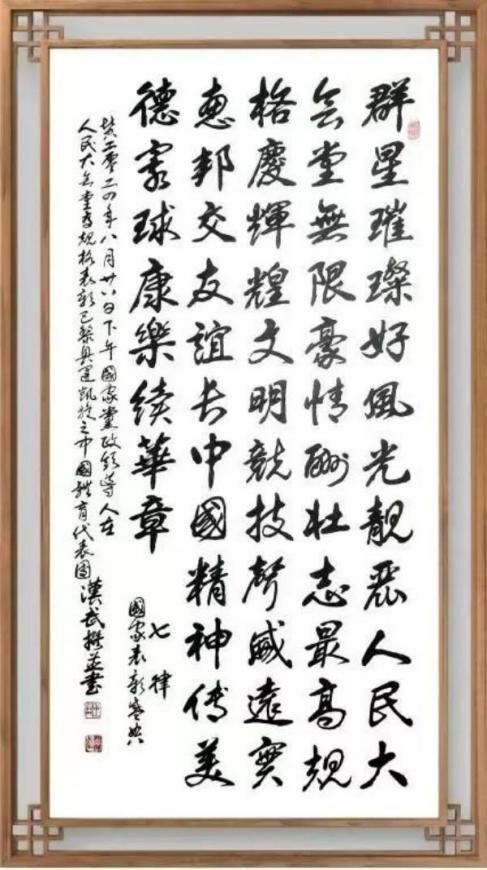 群星璀璨好風光靚麗人民大
会堂無限豪情酬壮志最高規
格慶輝煌文明競技聲威遠實
恵邦交友誼长中國精神傳美
德寰球康樂续華章
七律
國家表彰盛典
贊二零二四年八月廿八日下午國家黨政領導人在
人民大会堂高規格表彰巴黎奥運凯旋之中國體育代表團漢武撰並書